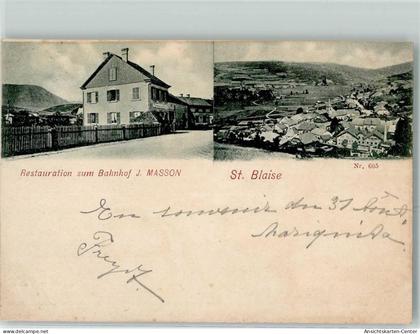 Restauration zum Bahnhof J. MASSON
St. Blaise
Nr. 605
En souvenir du 31 Août
Mariquita
www.ansichtskarten-center.de
Ansichtskarten-Center